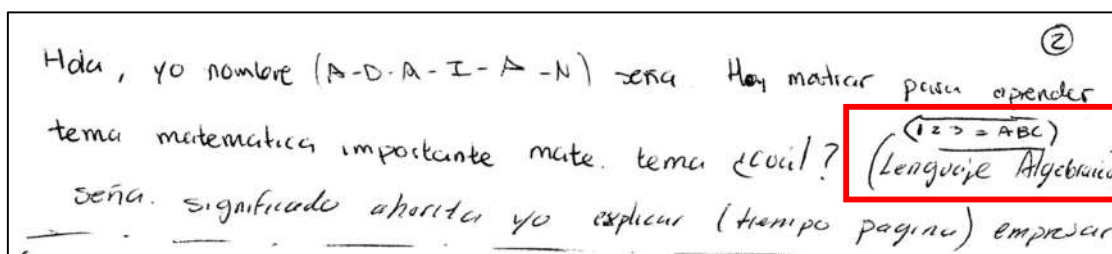 ②
Hola, yo nombre (A-D-A-I-A-N) seña. Hoy motivar para aprender
(1 2 3 = ABC)
tema matematica importante mate. tema ¿cuál? (Lenguaje Algebraico
seña. significado ahorita yo explicar (tiempo pagina) empresar